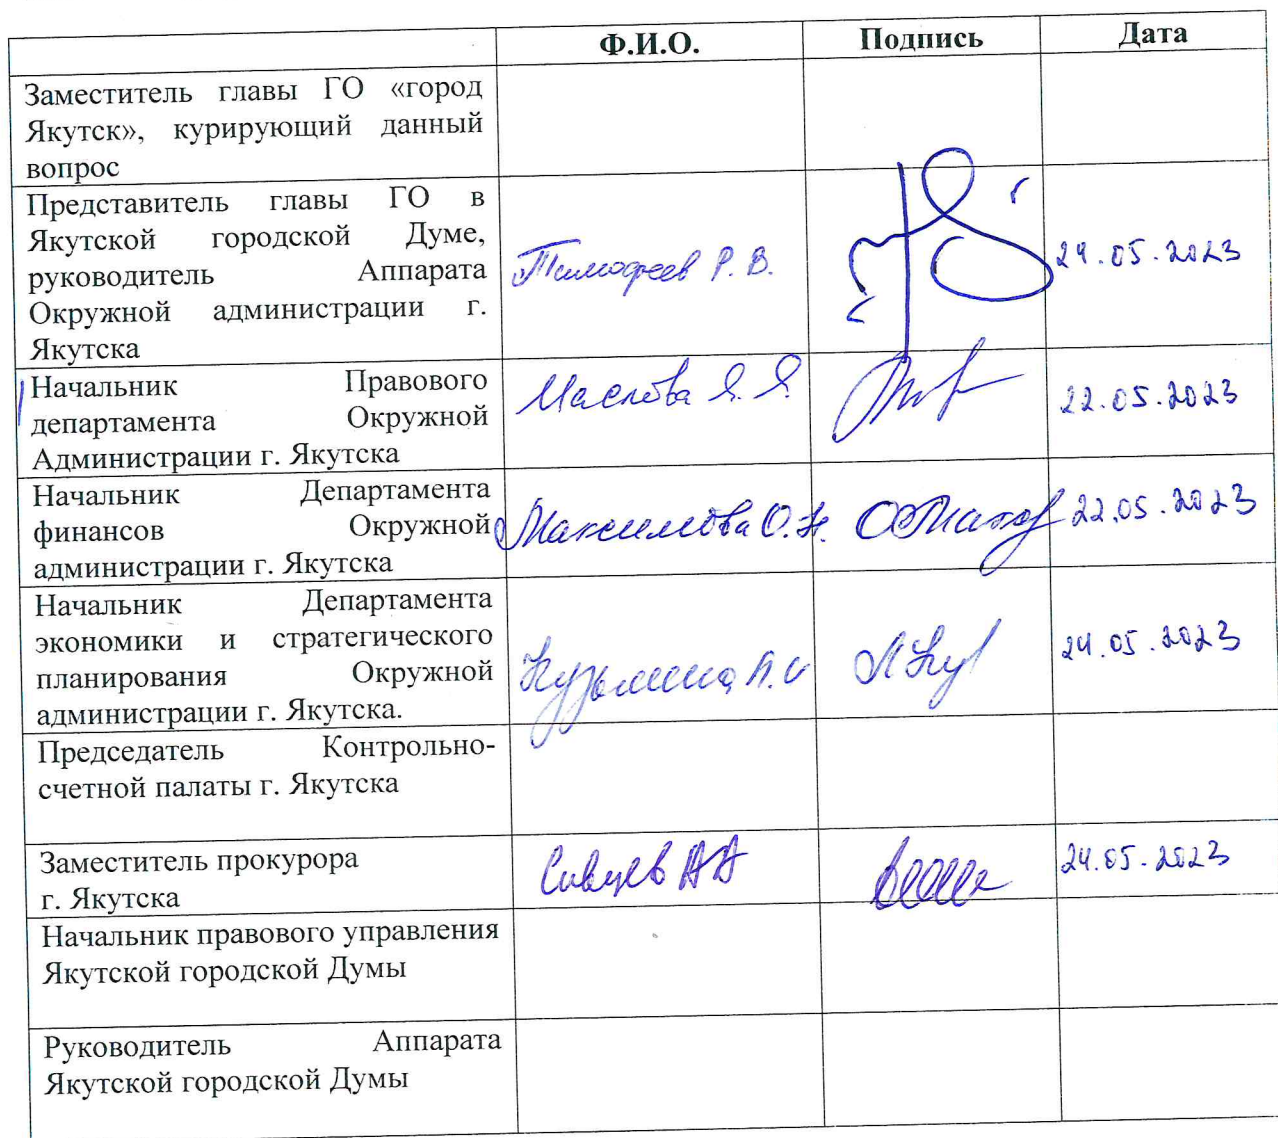 Ф.И.О. Подпись Дата
Заместитель главы ГО «город
Якутск», курирующий данный
вопрос
Представитель главы ГО в
Якутской городской Думе,
руководитель Аппарата
Окружной администрации г.
Якутска
Тимофеев Р. В. 24.05.2023
Начальник Правового
департамента Окружной
Администрации г. Якутска
Маслова Я. Я. 22.05.2023
Начальник Департамента
финансов Окружной
администрации г. Якутска
Максимова О. Н. 22.05.2023
Начальник Департамента
экономики и стратегического
планирования Окружной
администрации г. Якутска.
Кузьмина Л. И 24.05.2023
Председатель Контрольно-
счетной палаты г. Якутска
Заместитель прокурора
г. Якутска
Сивцев АА 24.05.2023
Начальник правового управления
Якутской городской Думы
Руководитель Аппарата
Якутской городской Думы